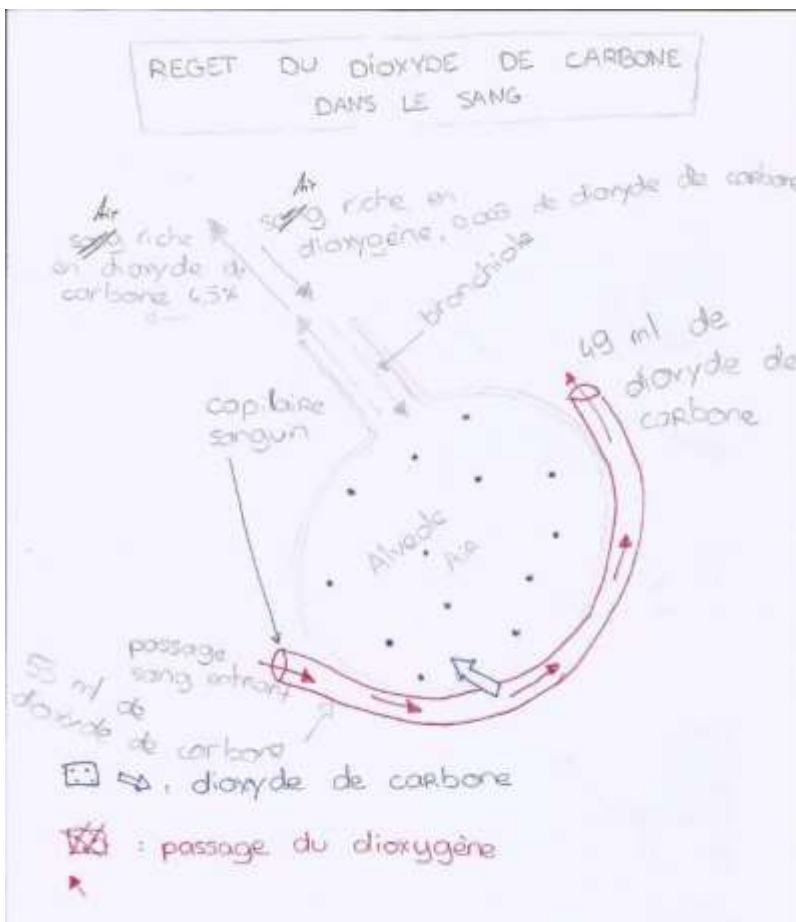 REGET DU DIOXYDE DE CARBONE
DANS LE SANG
Air
riche
en dioxyde de
carbone 4,5%
Air
riche en
dioxygène, de dioxyde de carbone
bronchiole
49 ml de
dioxyde de
carbone
capilaire
sanguin
Alveole
Air
passage
sang entrant
53 ml de
dioxyde de carbone
: dioxyde de carbone
: passage du dioxygène